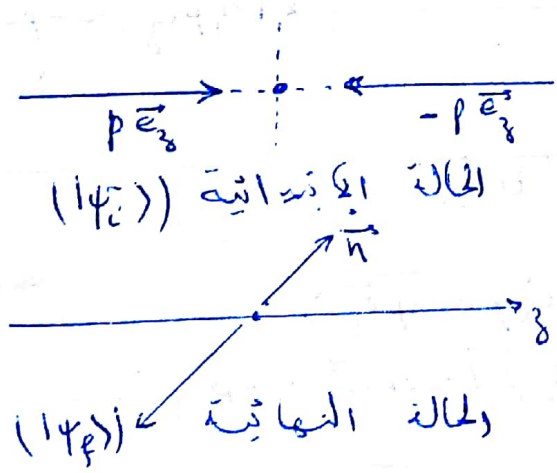 p e⃗_z    - p e⃗_z
الحالة الابتدائية (|ψ_i⟩)
n⃗
z
الحالة النهائية (|ψ_f⟩)